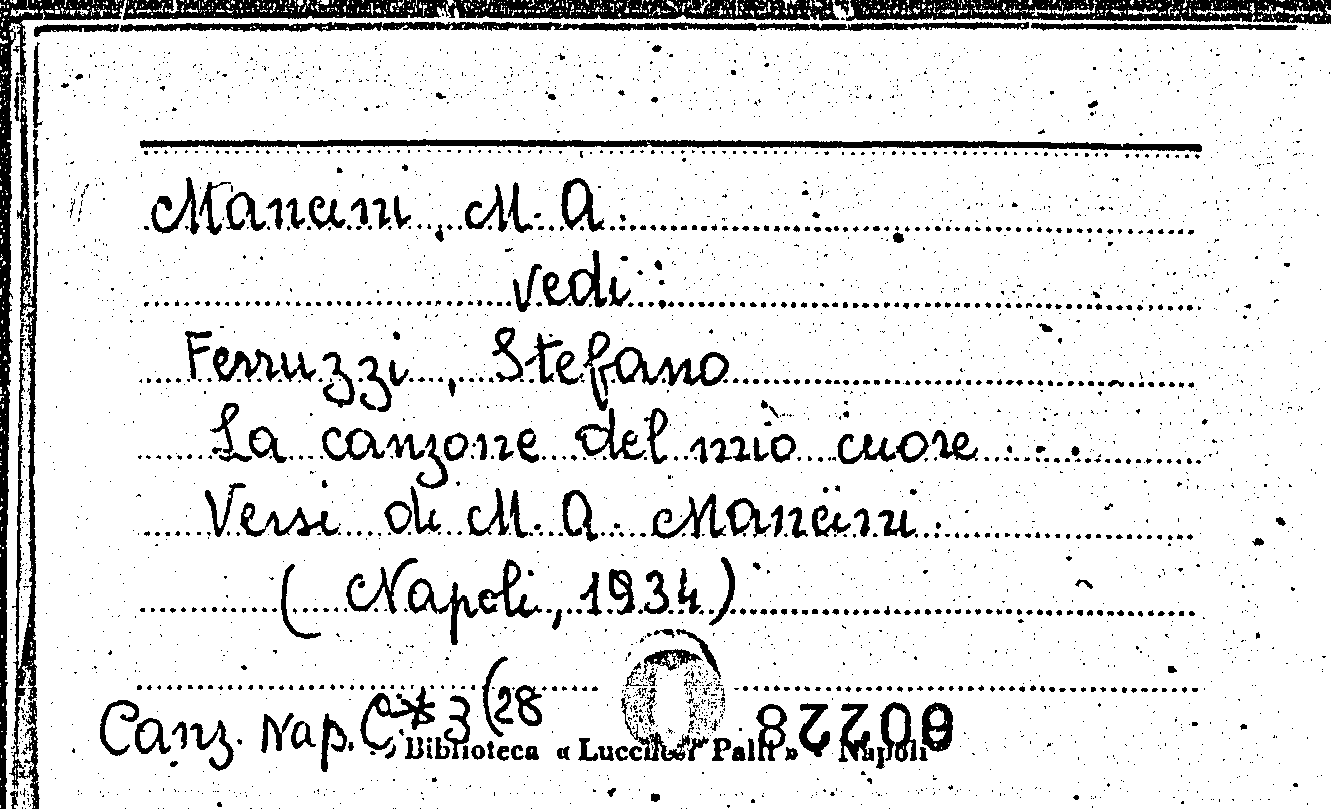 Mancini, M. A.
vedi:
Ferruzzi, Stefano
La canzone del mio cuore...
Versi di M. A. Mancini.
(Napoli, 1934)
Canz. Nap. C* 3 (28
Biblioteca « Lucchesi Palli » - Napoli